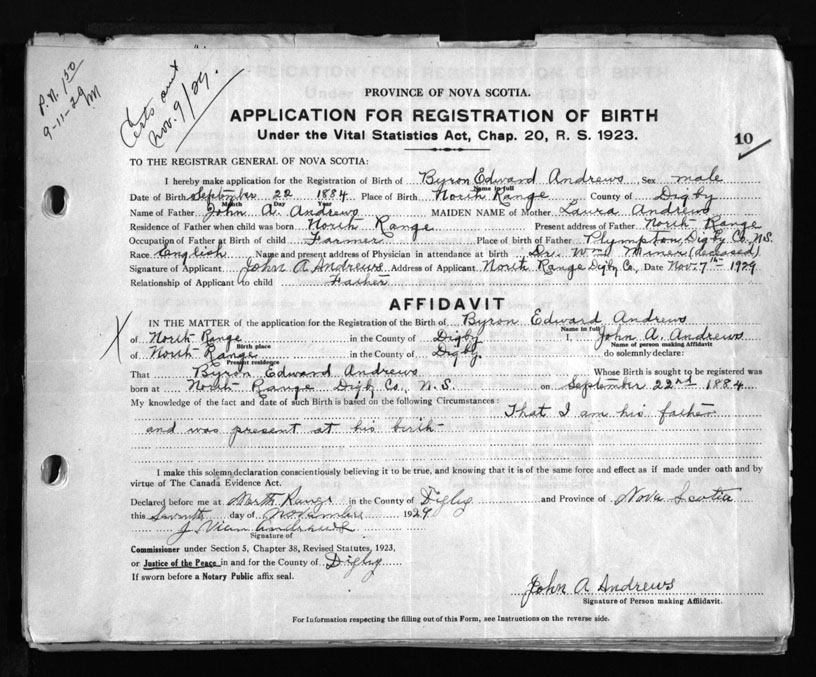 P.N. 150
9-11-29
Certs sent
Nov. 9/29.
PROVINCE OF NOVA SCOTIA.
APPLICATION FOR REGISTRATION OF BIRTH
Under the Vital Statistics Act, Chap. 20, R. S. 1923.
10
TO THE REGISTRAR GENERAL OF NOVA SCOTIA:
I hereby make application for the Registration of Birth of Byron Edward Andrews, Sex male
Name in full
Date of Birth September 22 1884 Place of Birth North Range County of Digby
Month Day Year
Name of Father John A. Andrews MAIDEN NAME of Mother Laura Andrews
Residence of Father when child was born North Range Present address of Father North Range
Occupation of Father at Birth of child Farmer Place of birth of Father Plympton, Digby Co., N.S.
Race English Name and present address of Physician in attendance at birth Dr. Wm Miner (deceased)
Signature of Applicant John A Andrews Address of Applicant North Range Digby Co., Date Nov. 7th 1929
Relationship of Applicant to child Father
AFFIDAVIT
X
IN THE MATTER of the application for the Registration of the Birth of Byron Edward Andrews
Name in full
of North Range in the County of Digby I, John A. Andrews
Birth place Name of person making Affidavit
of North Range in the County of Digby. do solemnly declare:
Present residence
That Byron Edward Andrews Whose Birth is sought to be registered was
born at North Range Digby Co., N.S. on September 22nd 1884
My knowledge of the fact and date of such Birth is based on the following Circumstances: That I am his father
and was present at his birth
I make this solemn declaration conscientiously believing it to be true, and knowing that it is of the same force and effect as if made under oath and by
virtue of The Canada Evidence Act.
Declared before me at North Range in the County of Digby and Province of Nova Scotia
this Seventh day of November 1929
J. Andrews
Signature of
Commissioner under Section 5, Chapter 38, Revised Statutes, 1923,
or Justice of the Peace in and for the County of Digby
If sworn before a Notary Public affix seal.
John A Andrews
Signature of Person making Affidavit.
For Information respecting the filling out of this Form, see Instructions on the reverse side.